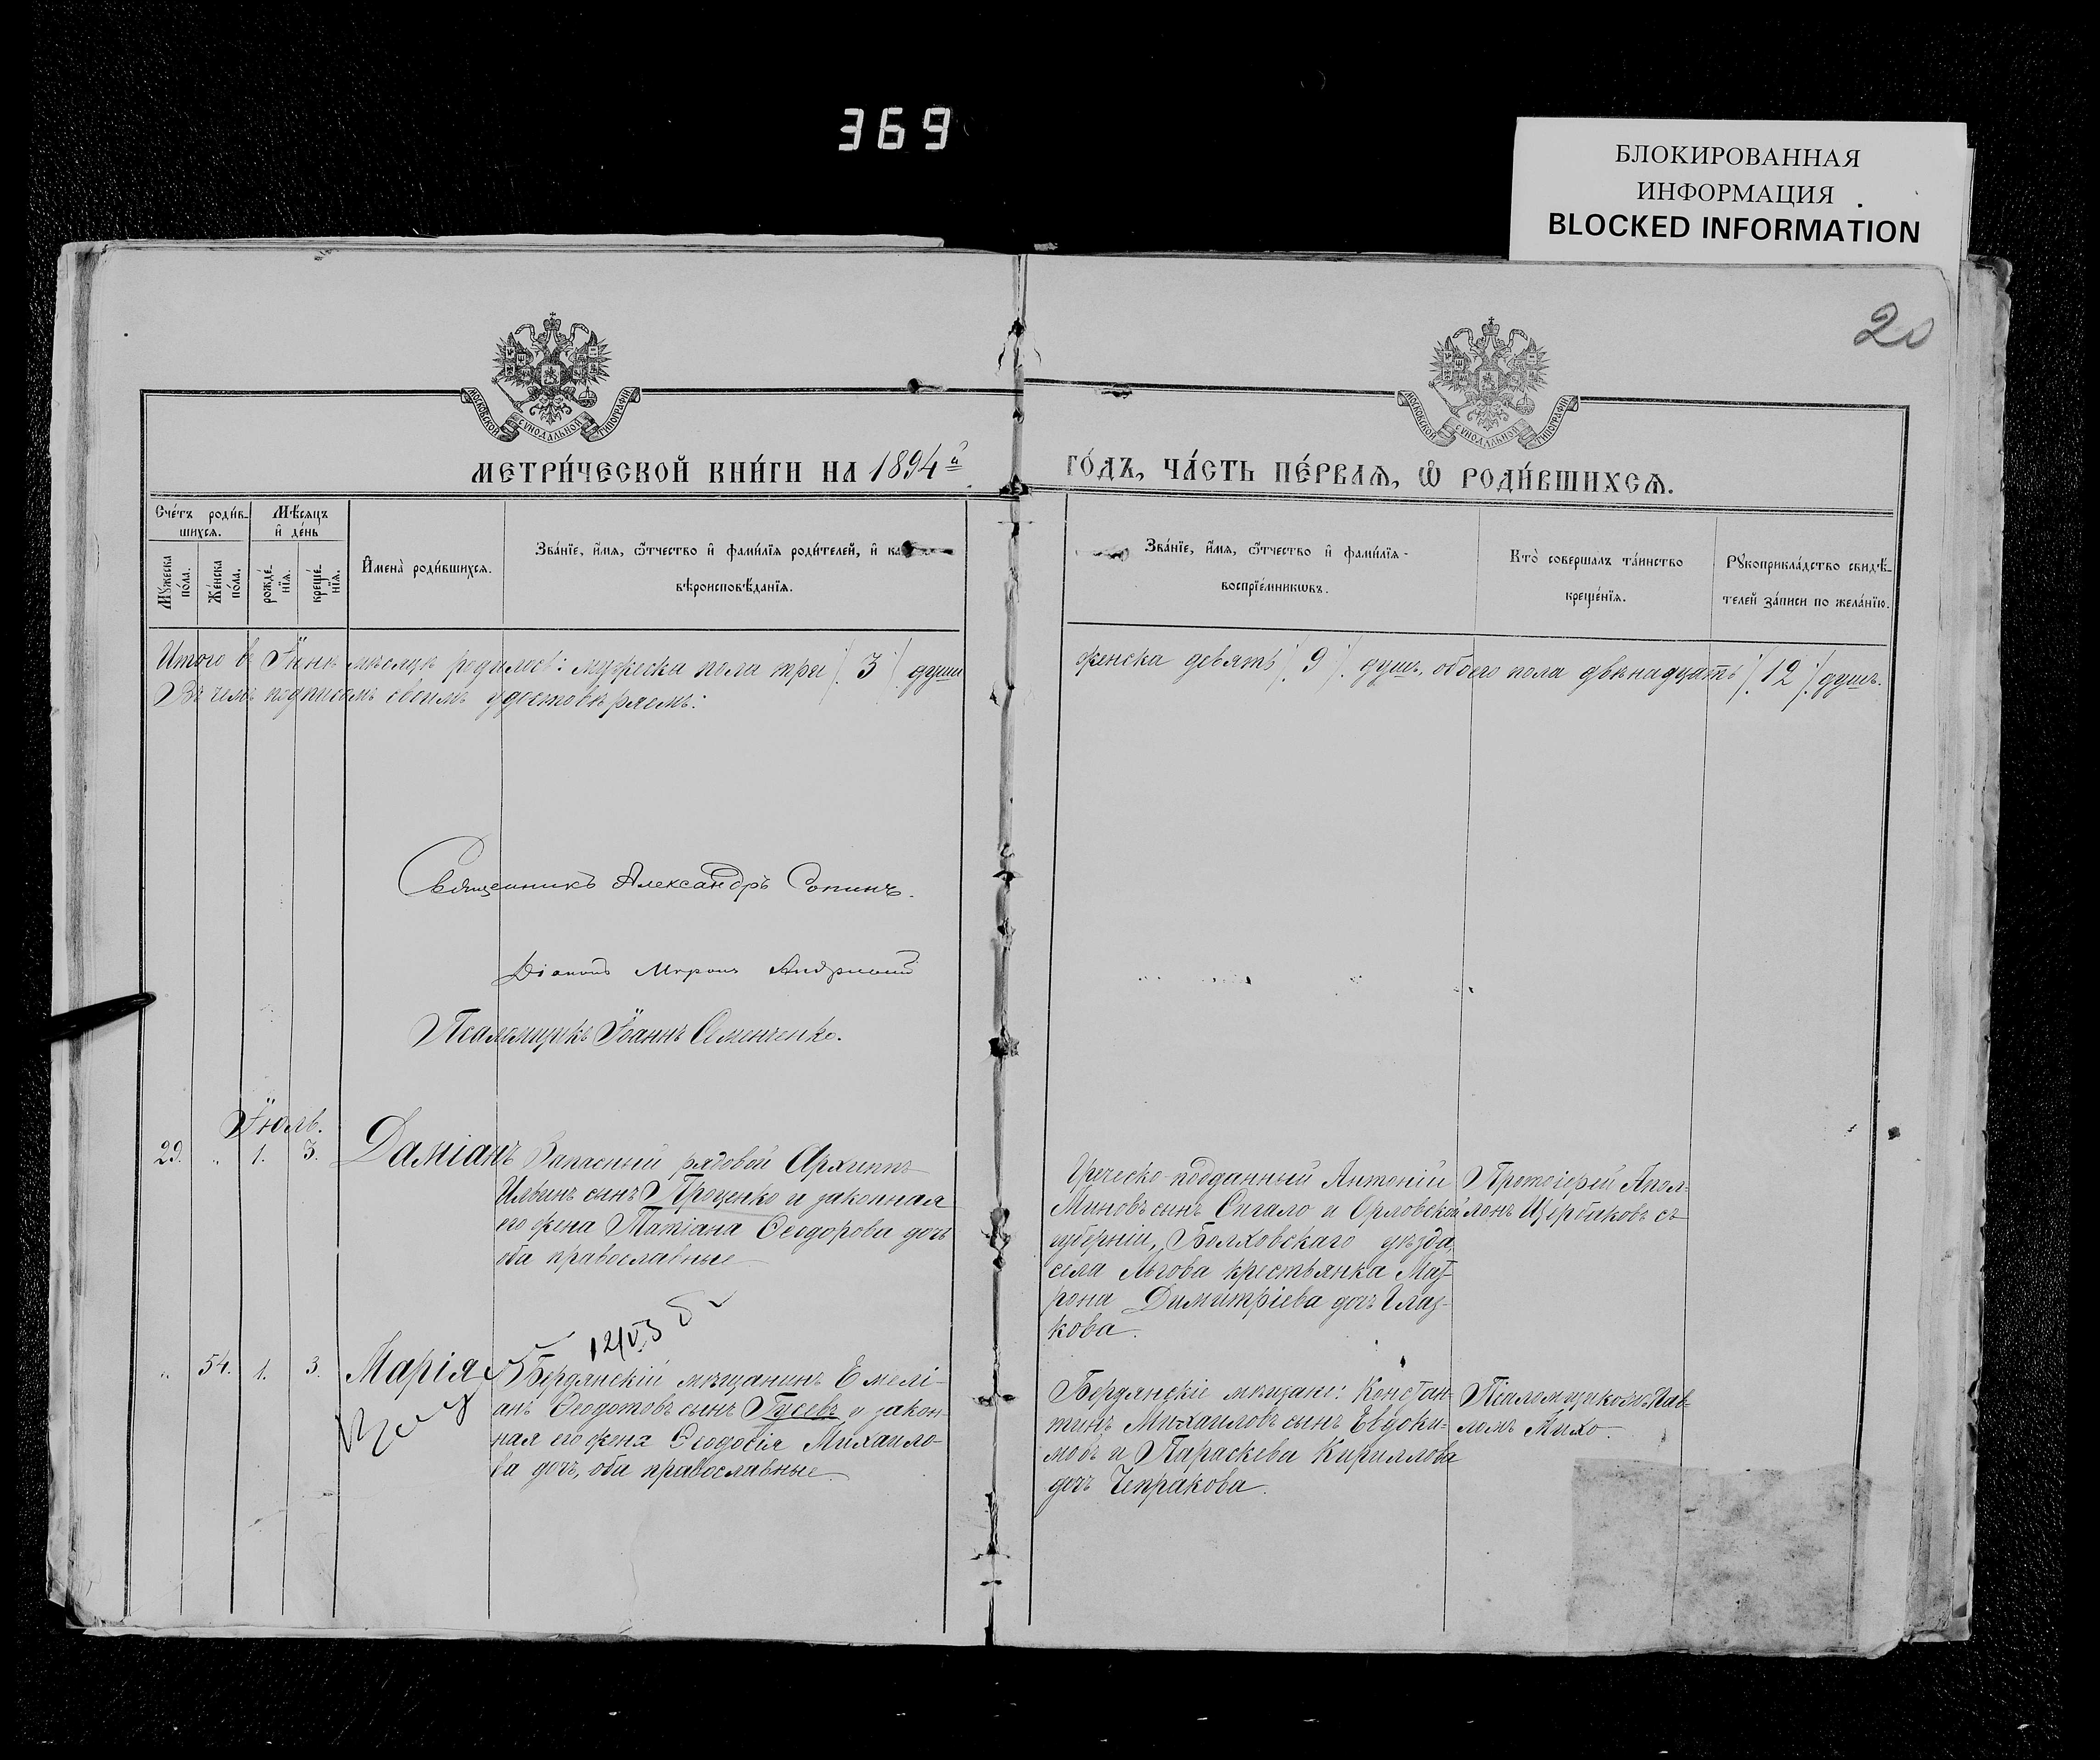 369
БЛОКИРОВАННАЯ
ИНФОРМАЦИЯ
BLOCKED INFORMATION
20
МОСКОВСКОЙ СУНОДАЛЬНОЙ ТИПОГРАФІИ
МОСКОВСКОЙ СУНОДАЛЬНОЙ ТИПОГРАФІИ
МЕТРИ́ЧЕСКОЙ КНИ́ГИ НА 1894й
ГО́ДЪ, ЧА́СТЬ ПЕ́РВАѦ, Ѡ҆ РОДИ́ВШИХСѦ.
Сче́тъ роди́в-
шихсѧ.
Мѣ́сяцъ
и҆ де́нь
Мꙋ́жеска
по́ла.
Же́нска
по́ла.
рожде́-
нїѧ.
креще́-
нїѧ.
И҆мена̀ роди́вшихсѧ.
Зва́нїе, и҆́мѧ, ѻ҆́тчество и҆ фами́лїѧ роди́телей, и҆ ка
вѣроисповѣ́данїѧ.
Зва́нїе, и҆́мѧ, ѻ҆́тчество и҆ фами́лїѧ
воспрїе́мникѡвъ.
Кто̀ соверша́лъ та́инство
креще́нїѧ.
Рꙋкоприкла́дство свидѣ́-
телей за́писи по жела́нїю.
Итого в Іюнѣ мѣсяцѣ родилось: мужеска пола три /. 3 /. души
женска девять /. 9 /. душъ, обоего пола двѣнадцать /. 12 /. душъ.
Въ чемъ подписомъ своимъ удостовѣряемъ:
Священникъ Александръ Сопинъ.
Діаконъ Миронъ
Псаломщикъ Іоаннъ Семенченко.
Іюль.
29. „ 1. 3. Даміанъ
Запасный рядовой Архиппъ
Ильинъ сынъ Проценко и законная
его жена Татіана Ѳеодорова дочь
оба православные
Греческо-подданный Антоній
Миновъ сынъ Сигало и Орловской
губерніи, Болховскаго уѣзда,
села Льгова крестьянка Мат-
рона Димитріева дочь Глаз-
кова.
Протоіерей Апол-
лонъ Щербаковъ съ
12/VI 3
„ 54. 1. 3. Марія
Бердянскій мѣщанинъ Емелі-
анъ Ѳеодотовъ сынъ Гусевъ и закон-
ная его жена Ѳеодосія Михаило-
ва дочь, оба православные
Бердянскіе мѣщане: Констан-
тинъ Михаиловъ сынъ Евдоки-
мовъ и Параскева Кириллова
дочь Чепракова.
Псаломщикомъ Пав-
ломъ Лихо.